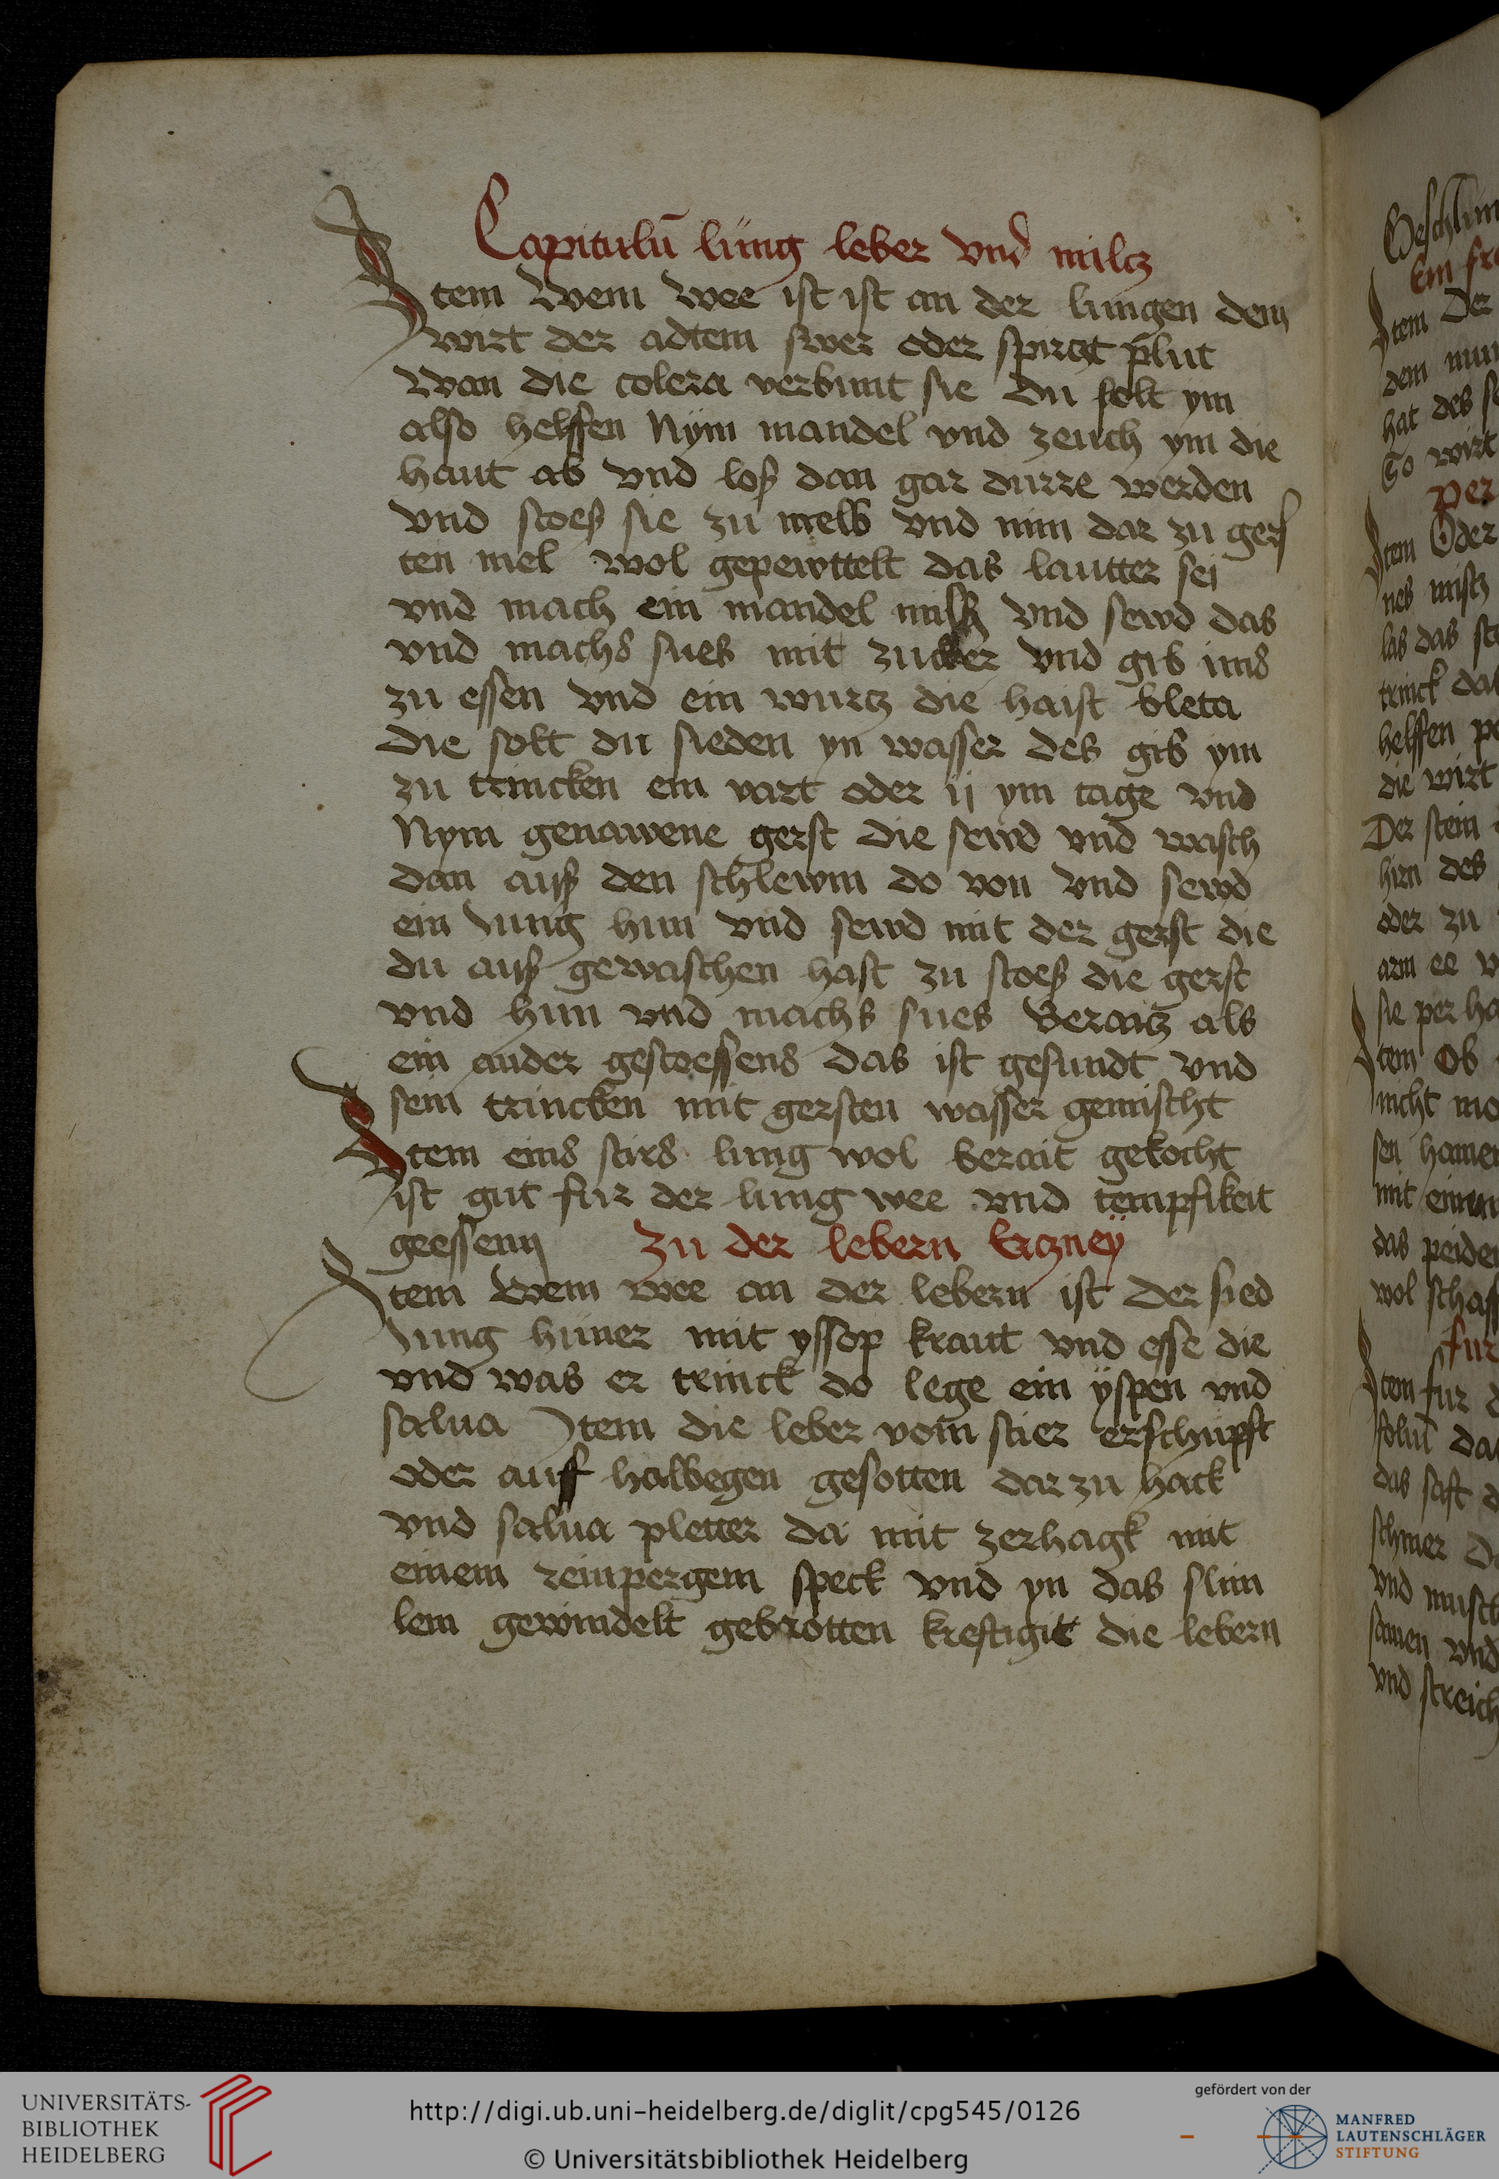 Capitulū lüng leber vnd milcz
Item Wem wee ist ist an der lungen dem
wirt der adtem swer oder spirczt plut
Wan die colera verbrint sie Du solt ym
also helffen Nÿm mandel vnd zeuch ym die
haut ab vnd loß dan gar durre werden
vnd stoeß sie zu melb vnd nim dar zu gers
ten mel wol gepewttelt das lautter sei
vnd mach ein mandel milk vnd sewd das
vnd machs sues mit zucker vnd gib ims
zu essen vnd ein wurtz die haist bleta
die solt du sieden yn wasser des gib ym
zu trincken ein vart oder ij ym tage vnd
Nym genawene gerst die sewd vnd wasch
dan auß den schlewm do von vnd sewd
ein Jung hun vnd sewd mit der gerst die
du auß gewaschen hast zu stoeß die gerst
vnd hun vnd machs sues Beraitz als
ein ander gestoessens das ist gesundt vnd
sein trincken mit gersten wasser gemischt
Item eins stirs lung wol berait gekocht
ist gut fur der lung wee vnd tempfikeit
geessenn Zu der lebern Ertzneÿ
Item Wem wee an der lebern ist der sied
Jung hüner mit yssop kraut vnd esse die
vnd was er trinck do lege ein ÿspen vnd
salua Item die leber vom stier erschupft
oder auff halbegen gesotten dar zu hack
vnd salua pletter da mit zerhagk mit
einem reinpergem speck vnd yn das slim
lem gewindelt gebrotten kreftigit die lebern
Item Der
dem
hat des
So wirt
per
Item Oder
nes misch
las das
trinck
helffen
die wirt
Der stein
hirn des
oder zu
arm ee
sie per
Item Ob
nicht
sen
mit einem
das
wol
fur
Item fur
das saft
vnd
samen vnd
vnd streich
UNIVERSITÄTS-
BIBLIOTHEK
HEIDELBERG
http://digi.ub.uni-heidelberg.de/diglit/cpg545/0126
© Universitätsbibliothek Heidelberg
gefördert von der
MANFRED
LAUTENSCHLÄGER
STIFTUNG